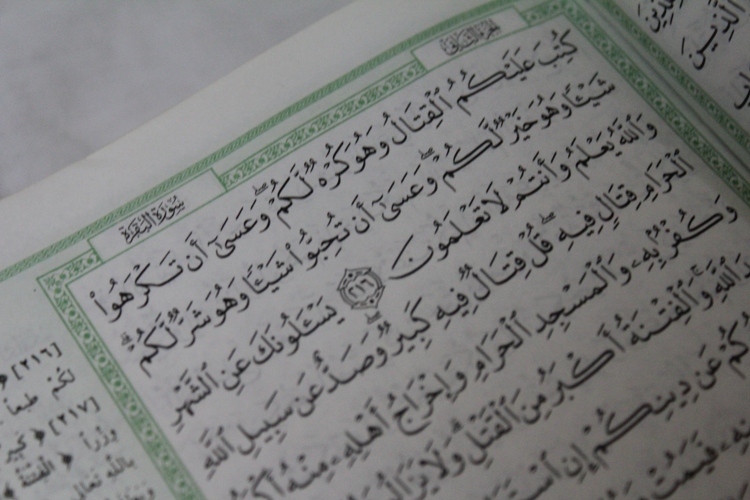 الجزء الثاني
سورة البقرة
كُتِبَ عَلَيْكُمُ ٱلْقِتَالُ وَهُوَ كُرْهٌ لَّكُمْ ۖ وَعَسَىٰٓ أَن تَكْرَهُوا۟
شَيْـًٔا وَهُوَ خَيْرٌ لَّكُمْ ۖ وَعَسَىٰٓ أَن تُحِبُّوا۟ شَيْـًٔا وَهُوَ شَرٌّ لَّكُمْ ۗ
وَٱللَّهُ يَعْلَمُ وَأَنتُمْ لَا تَعْلَمُونَ ٢١٦ يَسْـَٔلُونَكَ عَنِ ٱلشَّهْرِ
ٱلْحَرَامِ قِتَالٍ فِيهِ ۖ قُلْ قِتَالٌ فِيهِ كَبِيرٌ ۖ وَصَدٌّ عَن سَبِيلِ ٱللَّهِ
وَكُفْرٌۢ بِهِۦ وَٱلْمَسْجِدِ ٱلْحَرَامِ وَإِخْرَاجُ أَهْلِهِۦ مِنْهُ
ٱللَّهِ ۚ وَٱلْفِتْنَةُ أَكْبَرُ مِنَ ٱلْقَتْلِ ۗ وَلَا
عَن دِينِكُمْ إِنِ
فَيَمُتْ
[٢١٦]
لكم طبعاً
[٢١٧]